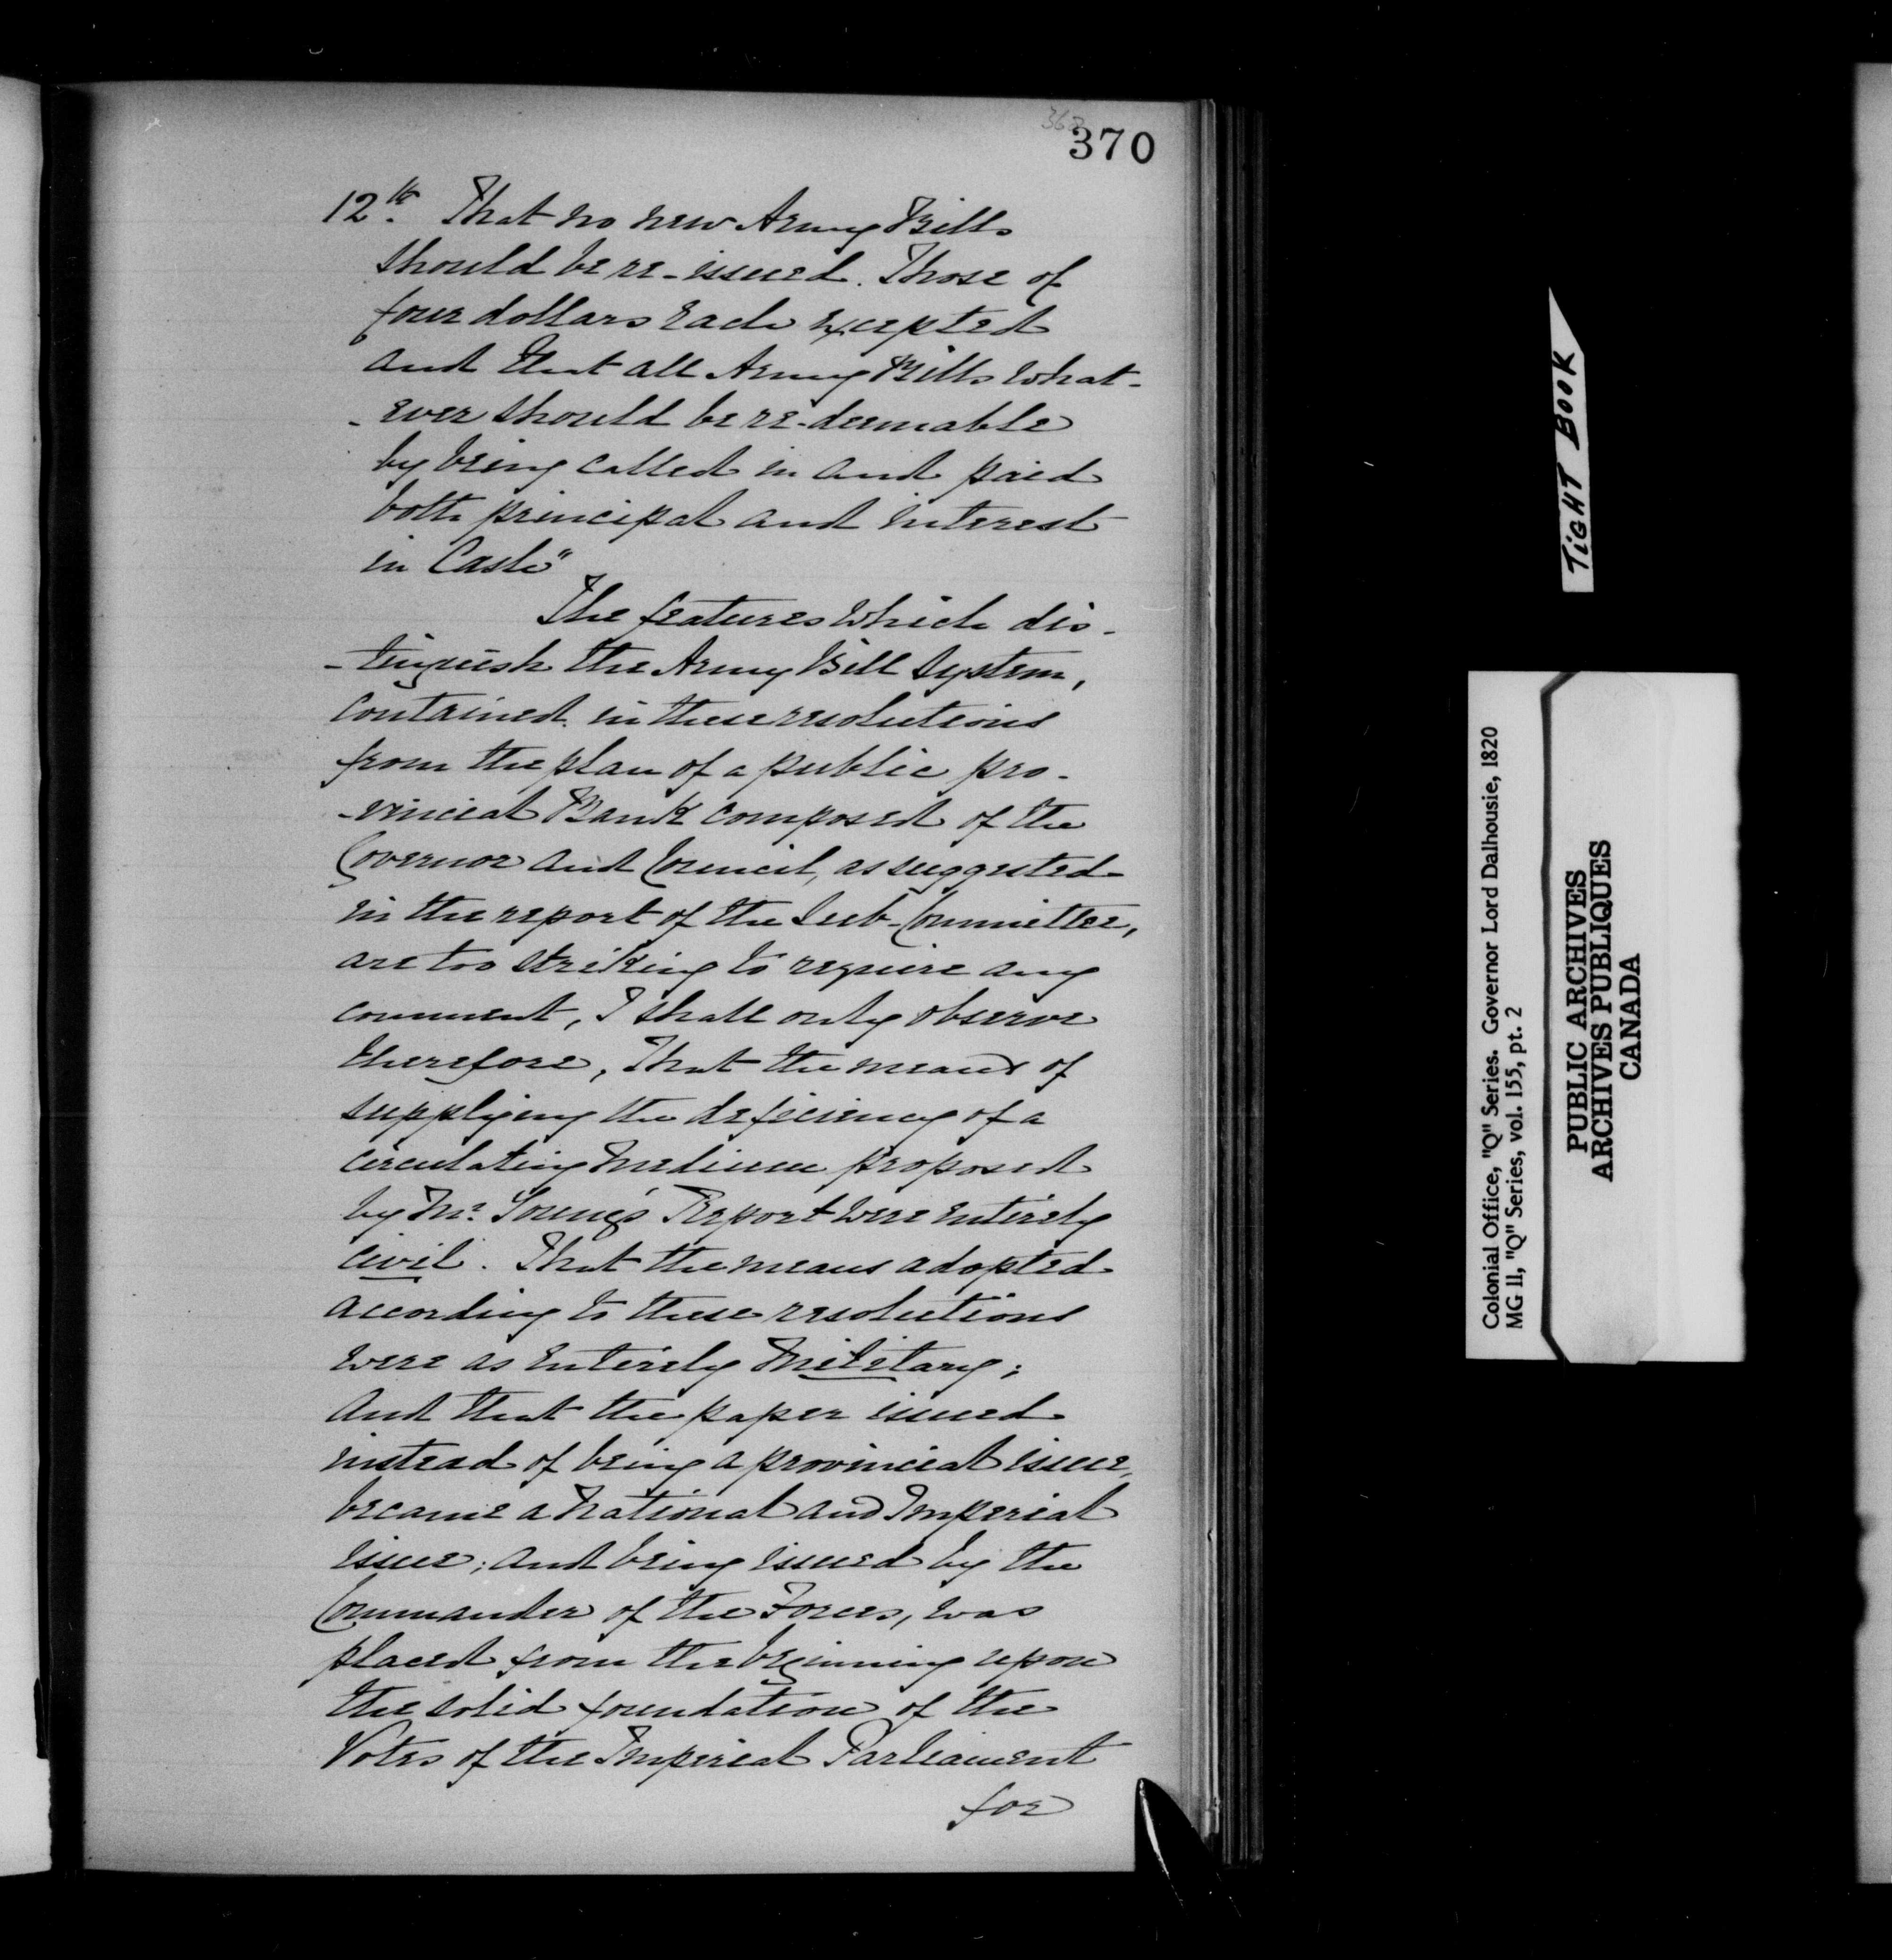 368
370
12th. That no new Army Bills
should be re-issued. Those of
four dollars each excepted
and that all Army Bills what-
-ever should be re-deemable
by being called in and paid
both principal and interest
in Cash"
The features which dis-
-tinguish the Army Bill System,
contained in these resolutions
from the plan of a public pro-
-vincial Bank composed of the
Governor and Council, as suggested
in the report of the Sub-Committee,
are too striking to require any
comment, I shall only observe
therefore, That the means of
supplying the deficiency of a
circulating medium proposed
by Mr. Young's Report were entirely
civil. That the means adopted
according to these resolutions
were as entirely Military;
and that the paper issued
instead of being a provincial issue,
became a National and Imperial
issue; and being issued by the
Commander of the Forces, was
placed from the beginning upon
the solid foundation of the
Votes of the Imperial Parliament
for
TIGHT BOOK
Colonial Office, "Q" Series. Governor Lord Dalhousie, 1820
MG 11, "Q" Series, vol. 155, pt. 2
PUBLIC ARCHIVES
ARCHIVES PUBLIQUES
CANADA